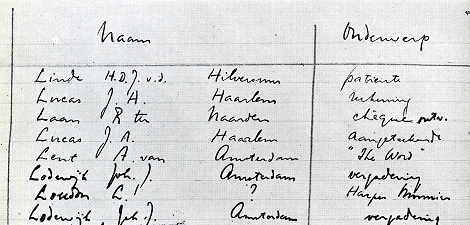 Naam Onderwerp
Linde H.D.J. v.d. Hilversum patiente
Lucas J. H. Haarlem rekening
Laan R ter Naarden chèque ontv.
Lucas J. A. Haarlem Aangetekende
Lent A. van Amsterdam "The Word"
Lodewijk Joh. J. Amsterdam vergadering
London L. ? Harper
Lodewijk Joh. J. Amsterdam vergadering